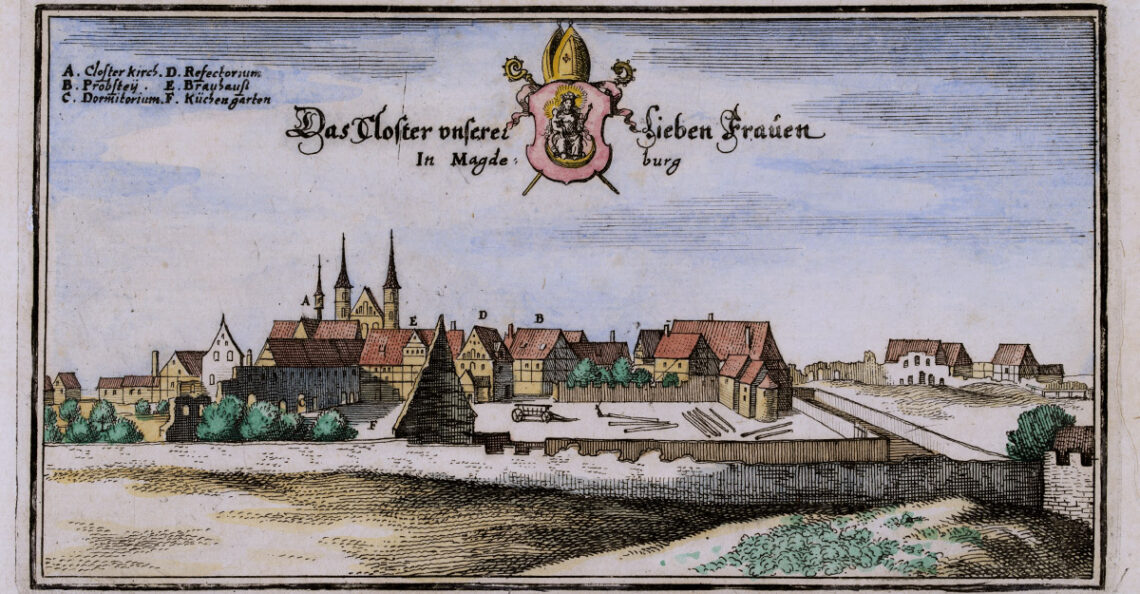 A. Closter kirch. D. Refectorium
B. Probsteÿ. E. Brauhauß
C. Dormitorium. F. Küchen garten
Das Closter vnserer Lieben Fraŭen
In Magde: burg
A
E
D
B
F